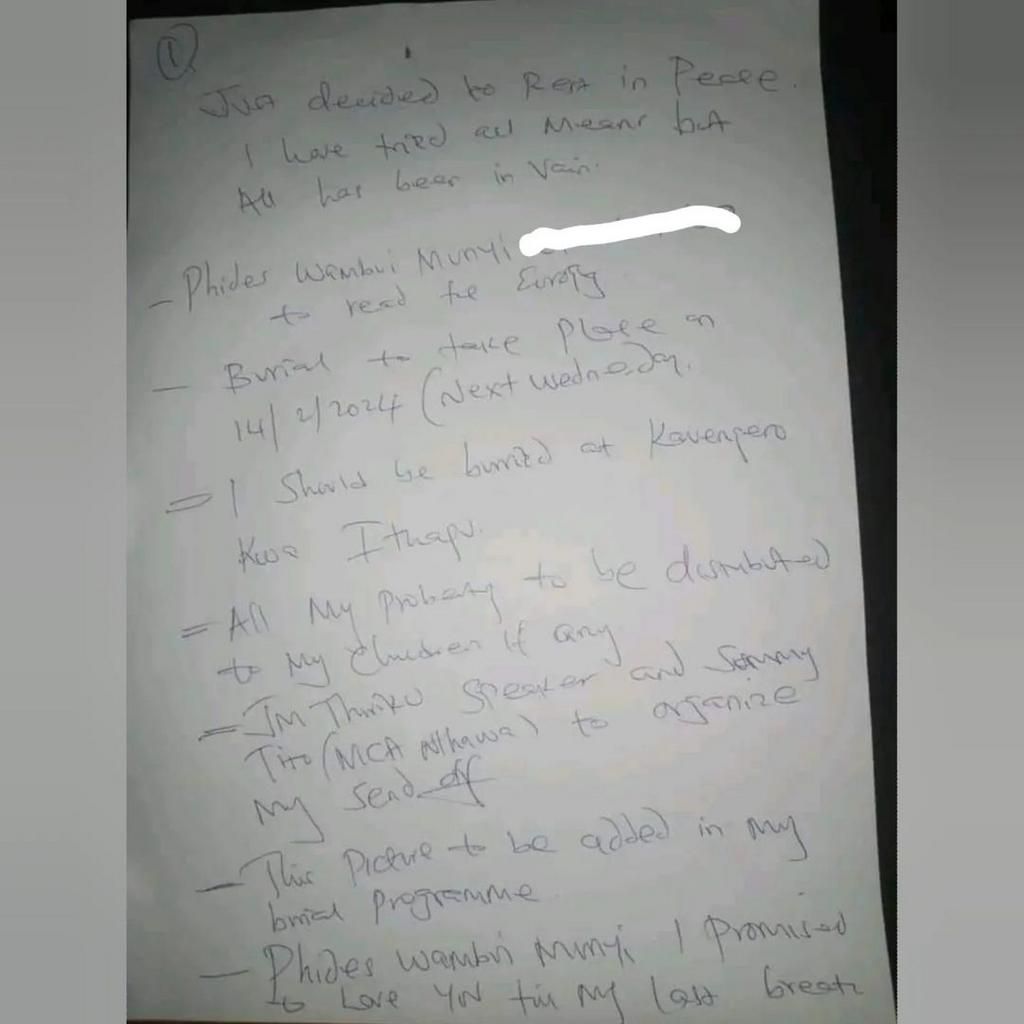 1
Just decided to Rest in Peace.
I have tried all Means but
All has been in Vain.
- Phides Wambui Munyi
to read the
- Burial to take Place on
14/2/2024 (Next Wednesday.
= I Should be burried at
Kwa
= All My to be distributed
to My Children if any
= Jm Thuku Speaker and Sammy
Tito (MCA Nthawa) to organize
My Send off
- This Picture to be added in My
burial Programme
- Phides Wambui Munyi I Promised
to Love You till My last breath